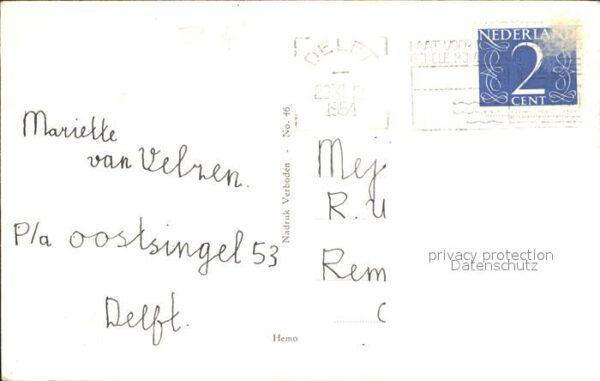 Mariette
van Velzen.
P/a oostsingel 53
Delft.
Nadruk Verboden - No. 46
Hemo
DELFT
1954
LAAT VOOR
NEDERLAND
2
CENT
Mej
R. U
Rem
privacy protection
Datenschutz